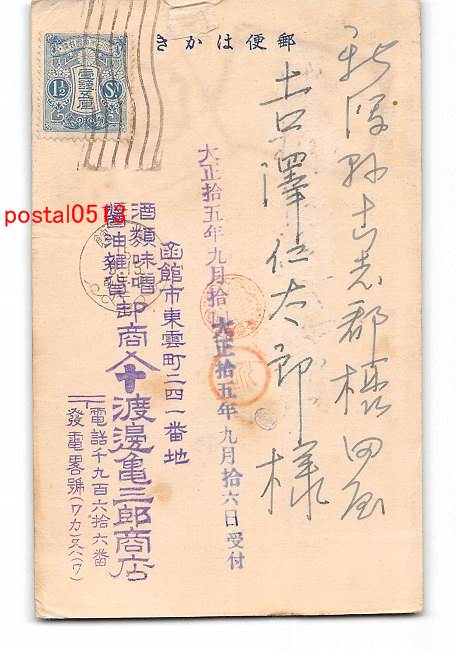 郵便はかき
壹錢五厘
1½ Sn
新潟県古志郡
吉澤仁太郎様
大正拾五年九月拾
大正拾五年九月拾六日受付
函館市東雲町二四一番地
酒類味噌
醬油雜貨
卸商
渡邊亀三郎商店
電話千九百六拾六番
發電畧號(ワカ又ハ(ワ)
postal0519